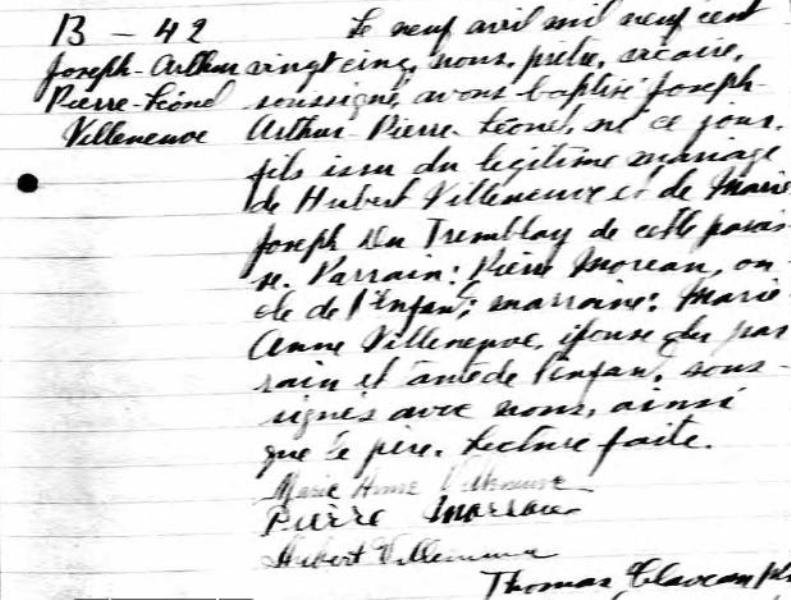 B - 42
Joseph-Arthur
Pierre-Léonel
Villeneuve
Le neuf avril mil neuf cent
vingt cinq, nous, prêtre, vicaire,
soussigné, avons baptisé Joseph-
Arthur-Pierre-Léonel, né ce jour,
fils issu du légitime mariage
de Hubert Villeneuve et de Marie
Joseph Du Tremblay de cette parois-
se. Parrain: Pierre Moreau, on-
cle de l'enfant; marraine: Marie-
Anne Villeneuve, épouse du par
rain et tante de l'enfant, sous-
signés avec nous, ainsi
que le père. Lecture faite.
Marie Anne Villeneuve
Pierre Morreau
Hubert Villeneuve
Thomas Claveau ptr